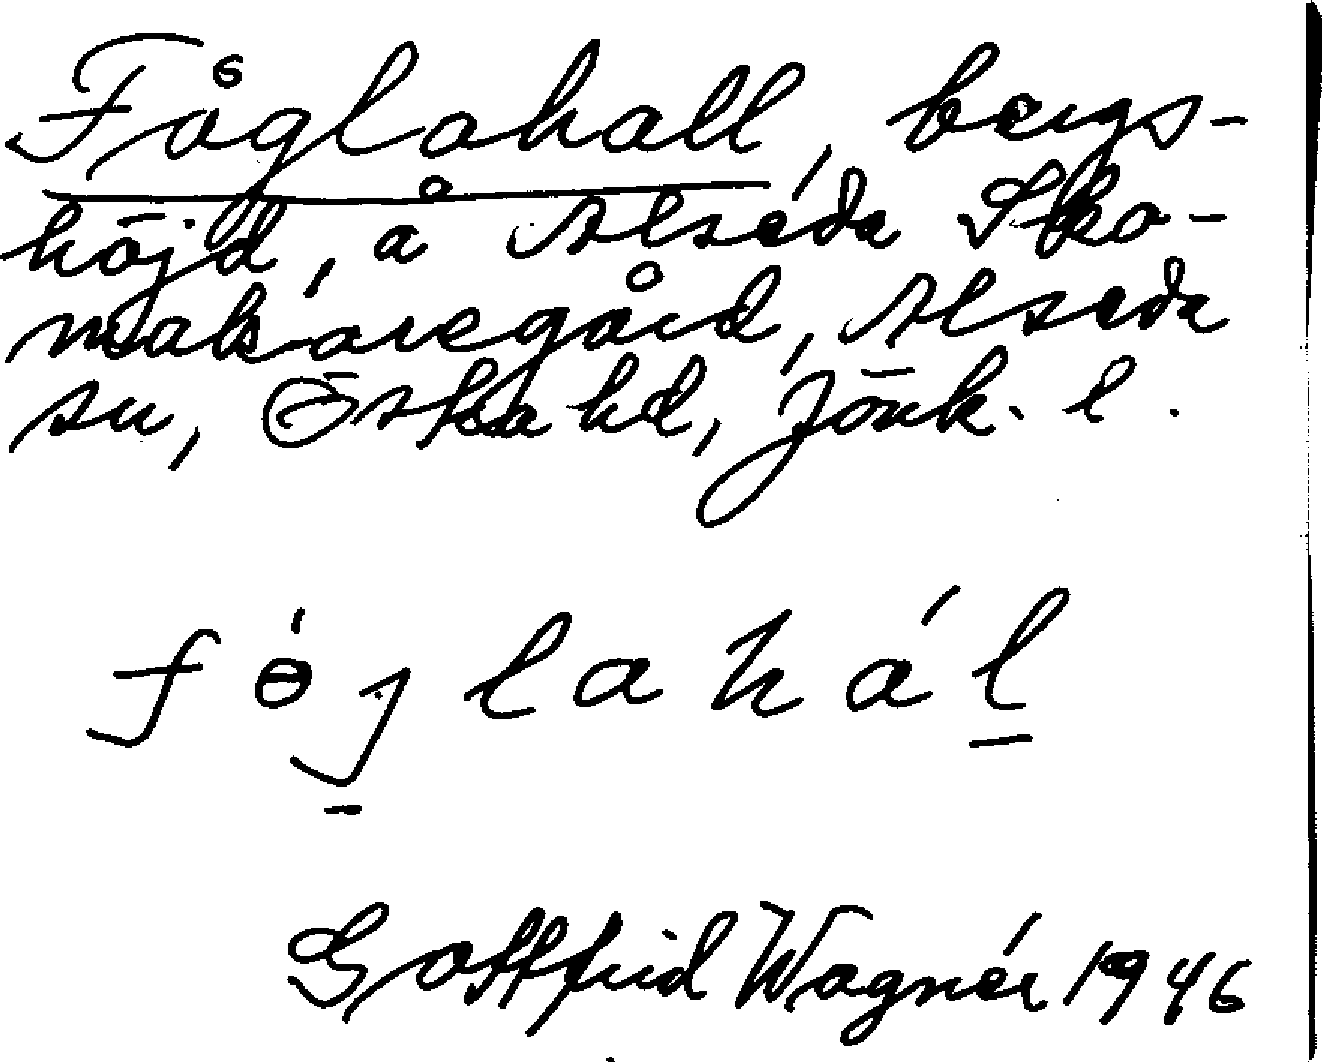 Fåglahall, bergs-
höjd, å Alseda Sko-
makaregård, Alseda
sn, Östra hd, Jönk. l.
fɵ́jlahál
Gottfrid Wagnér 1946